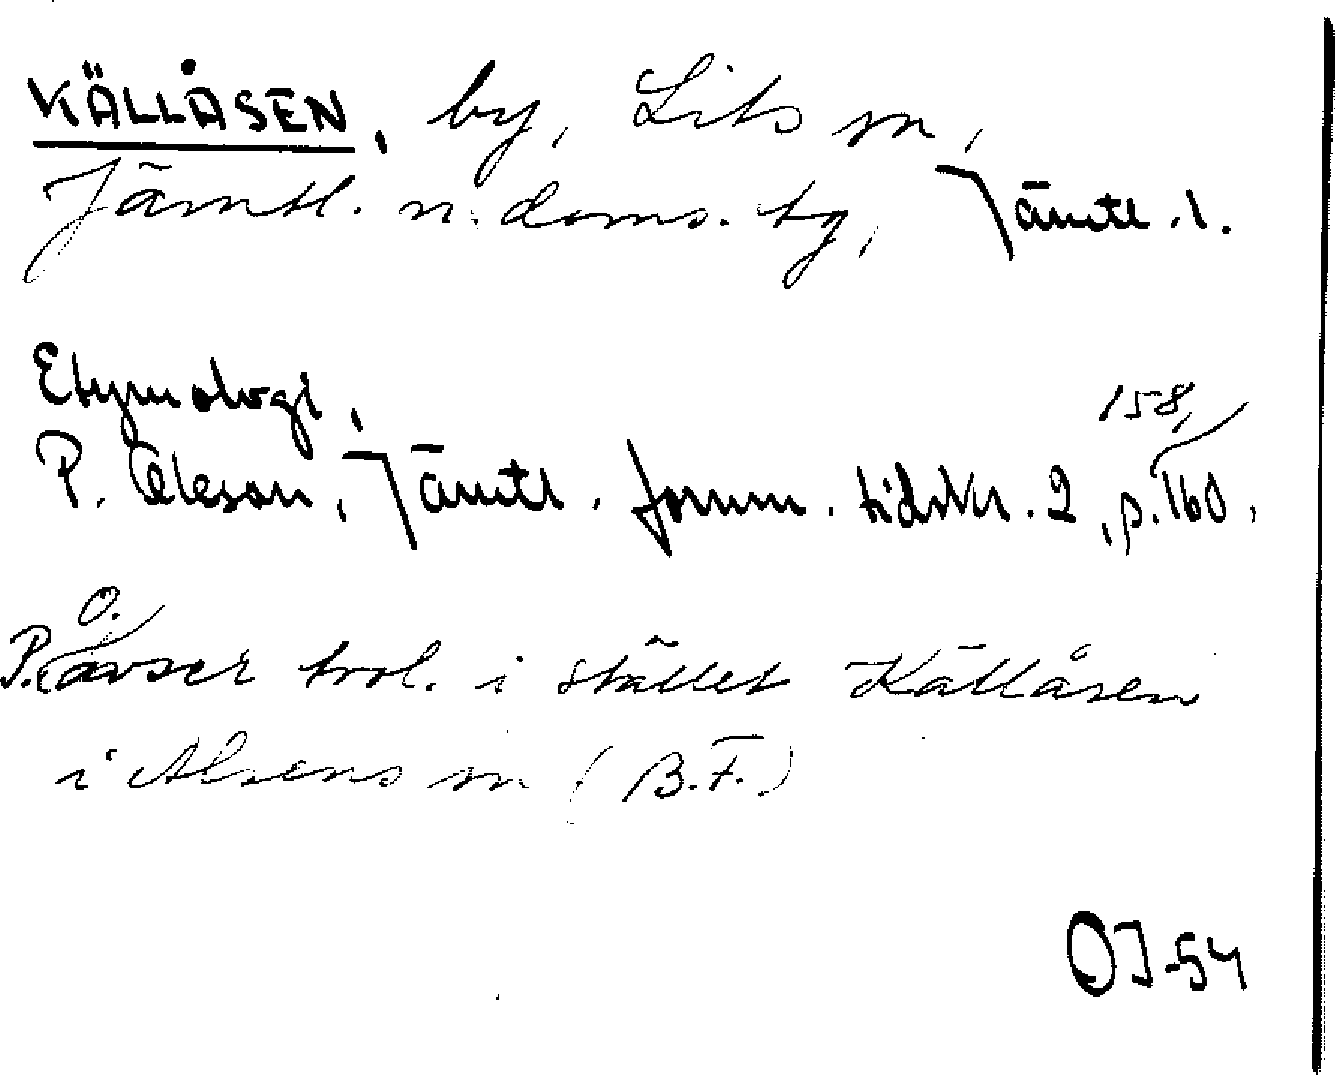 KÄLLÅSEN, by, Lits sn,
Jämtl. n. doms. tg, Jämtl. l.
Etymologi,
P. Oleson, Jämtl. fornm. tidskr. 2, p. 158, 160,
P. O. avser trol. i stället Källåsen
i Alsens sn (B.F.)
OJ-54